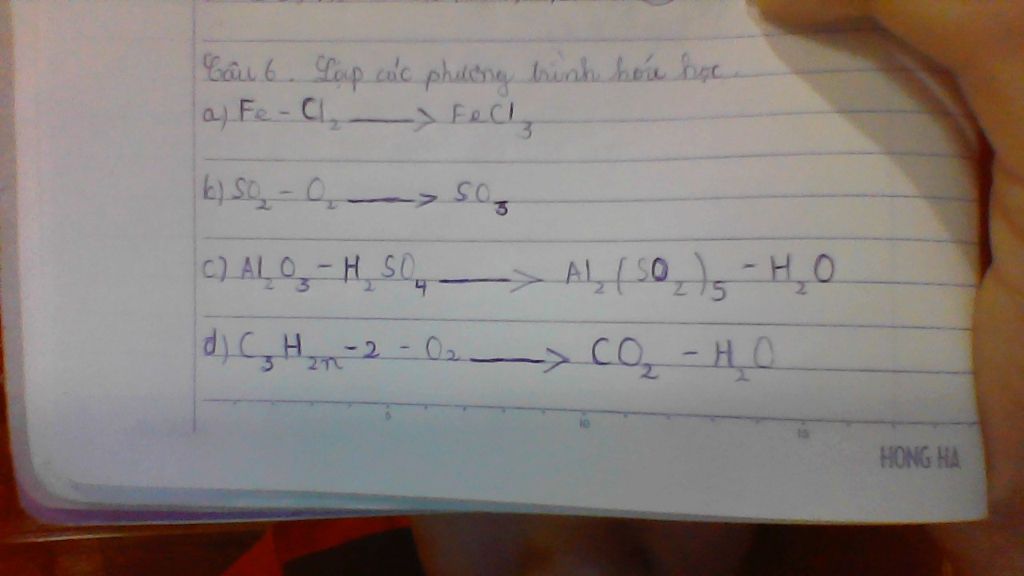 Câu 6. Lập các phương trình hóa học.
a) Fe - Cl₂ ⟶ FeCl₃
b) SO₂ - O₂ ⟶ SO₃
c) Al₂O₃ - H₂SO₄ ⟶ Al₂(SO₂)₅ - H₂O
d) C₃H₂ₙ-2 - O₂ ⟶ CO₂ - H₂O
5 10 15
HONG HA